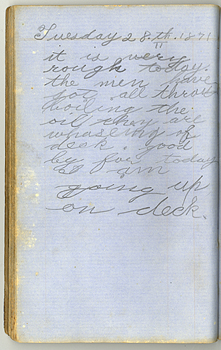 Tuesday 28th. 1871
it is very
rough today.
the men have
got all throu
boiling the
oil they are
whasaing of
desk. good
by for today
I am
going up
on deck.